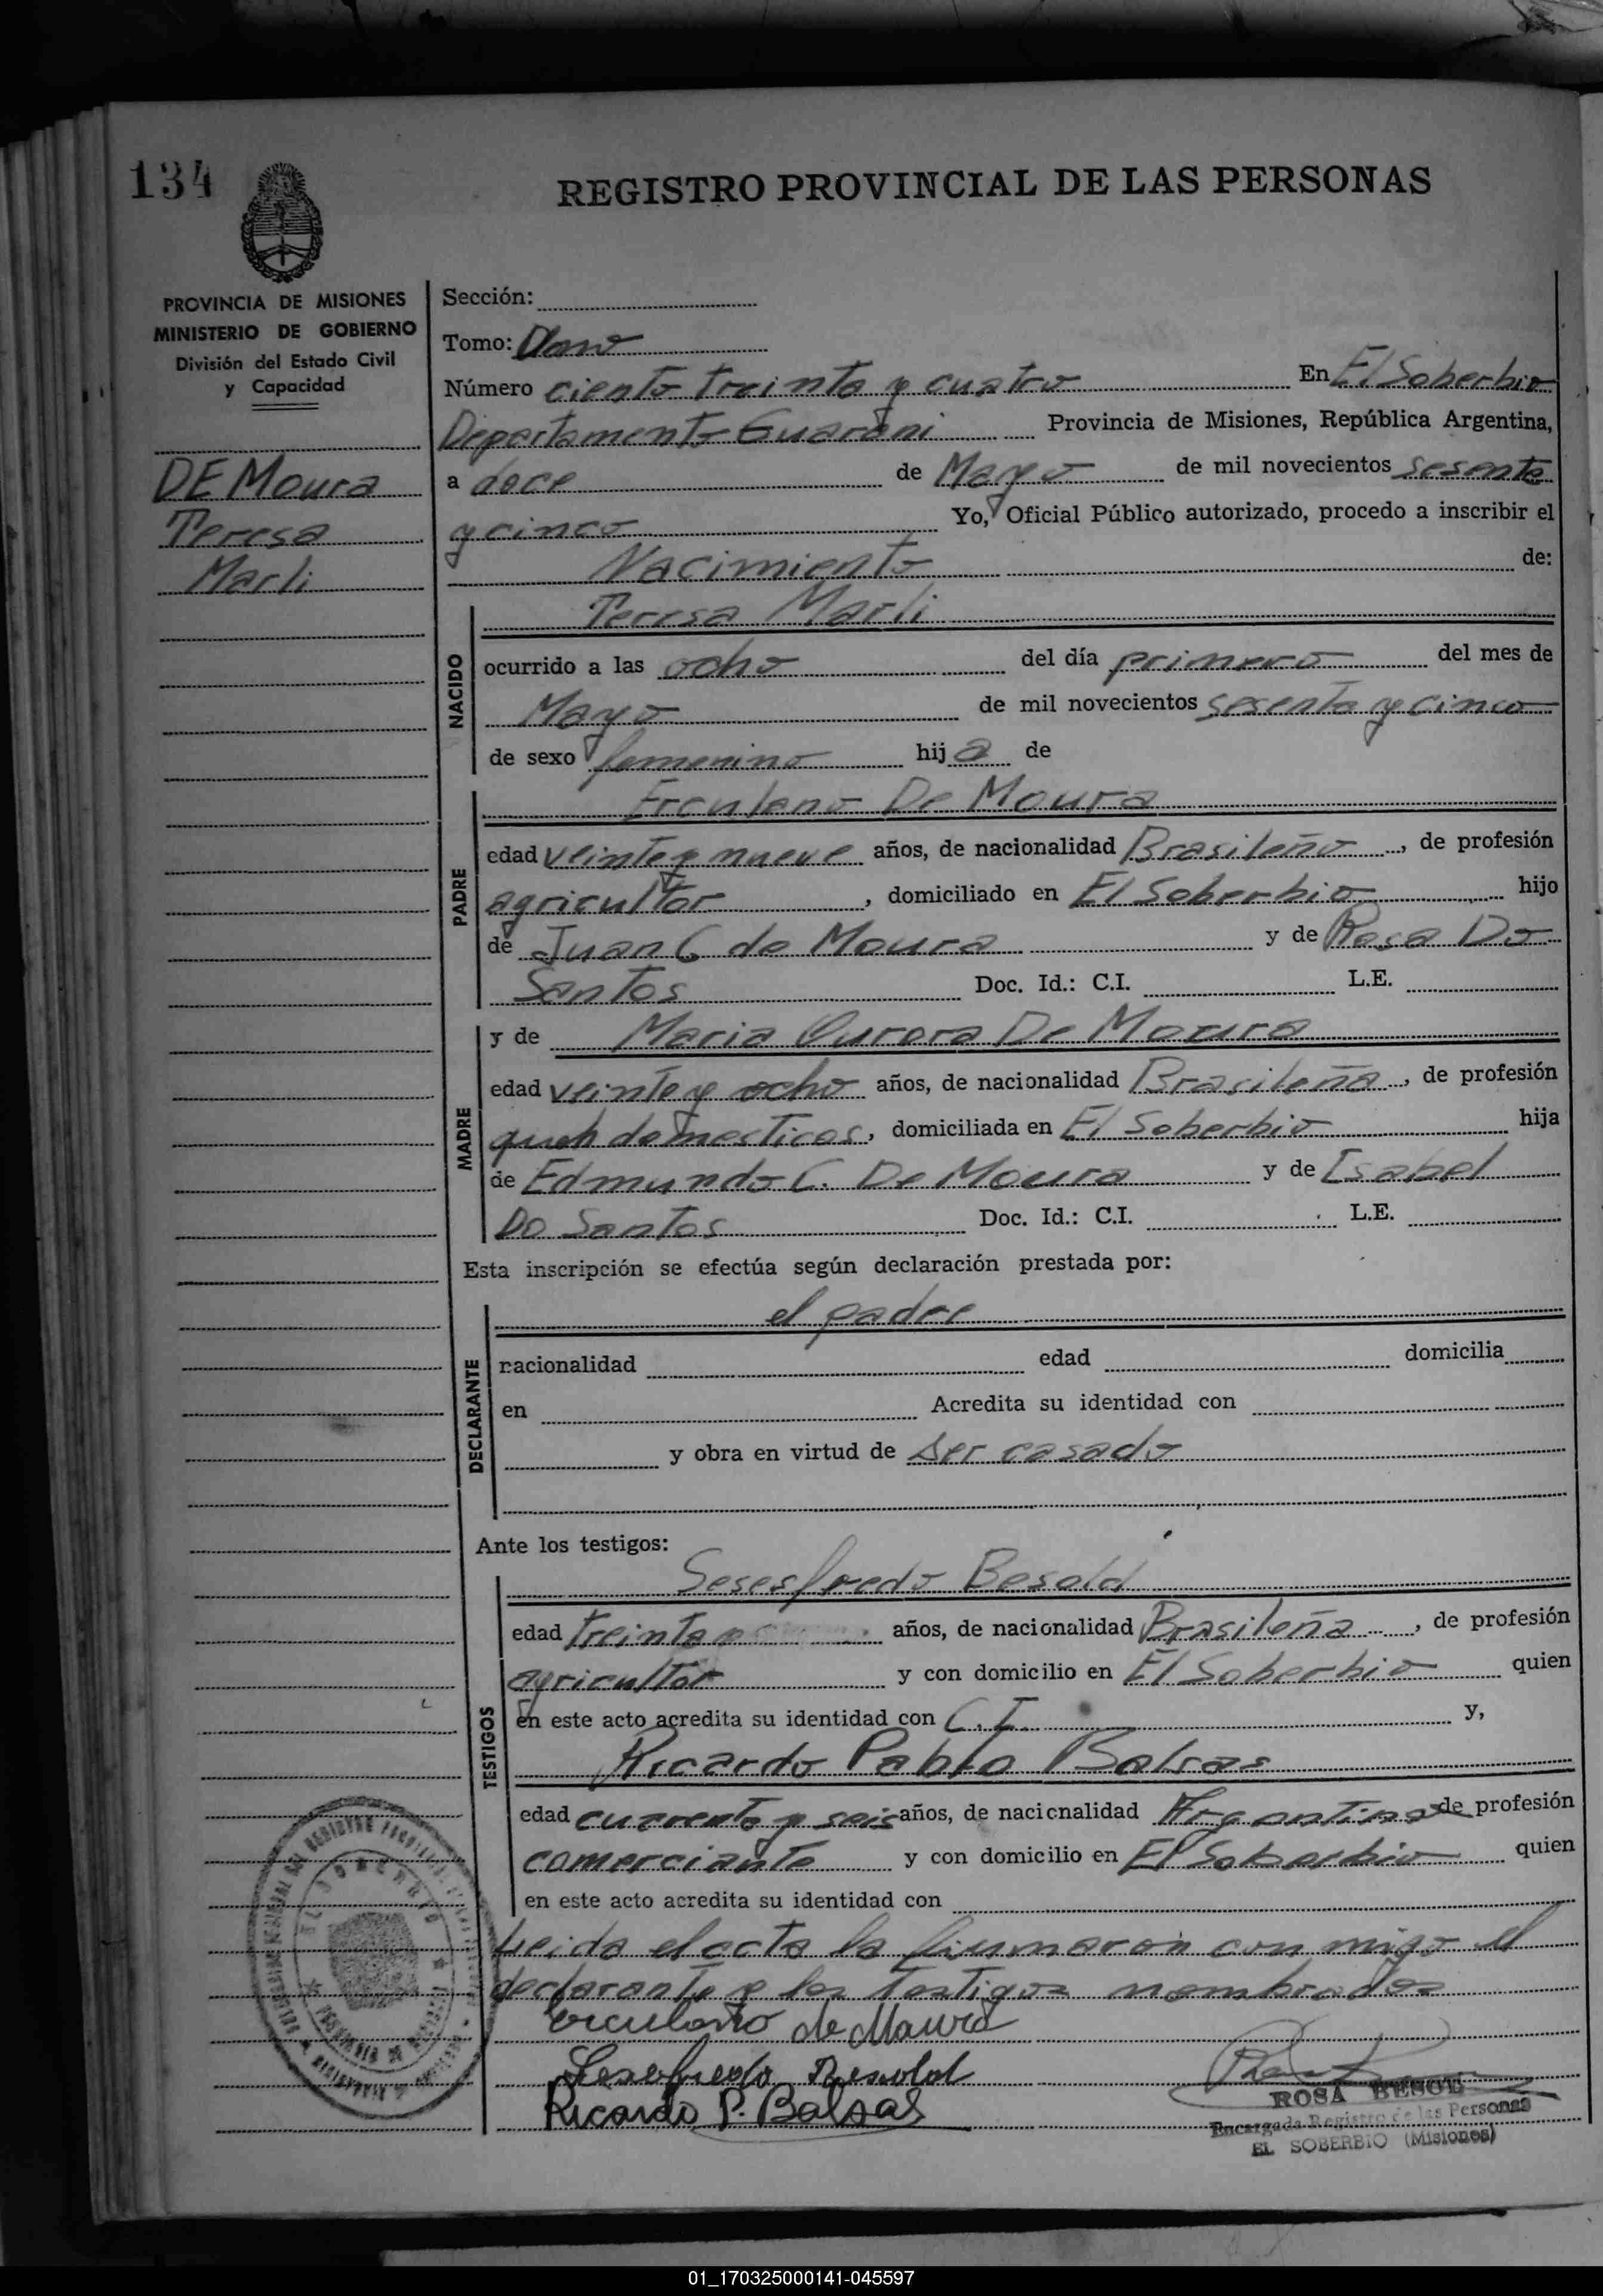 134
REGISTRO PROVINCIAL DE LAS PERSONAS
PROVINCIA DE MISIONES
MINISTERIO DE GOBIERNO
División del Estado Civil
y Capacidad
DE Moura
Teresa
Marli
Sección:
Tomo:
Número ciento treinta y cuatro En El Soberbio
Departamento Guarani Provincia de Misiones, República Argentina,
a doce de Mayo de mil novecientos sesenta
y cinco Yo, Oficial Público autorizado, procedo a inscribir el
Nacimiento de:
Teresa Marli
NACIDO
ocurrido a las ocho del día primero del mes de
Mayo de mil novecientos sesenta y cinco
de sexo femenino hija de
PADRE
Erculano De Moura
edad veinte y nueve años, de nacionalidad Brasileño, de profesión
agricultor, domiciliado en El Soberbio hijo
de Juan C de Moura y de Rosa Do
Santos Doc. Id.: C.I. L.E.
MADRE
y de Maria Aurora De Moura
edad veinte y ocho años, de nacionalidad Brasileña, de profesión
queh domesticos, domiciliada en El Soberbio hija
de Edmundo C. De Moura y de Isabel
Do Santos Doc. Id.: C.I. L.E.
Esta inscripción se efectúa según declaración prestada por:
DECLARANTE
el padre
nacionalidad edad domicilia
en Acredita su identidad con
y obra en virtud de ser casado
Ante los testigos:
TESTIGOS
Sesesfredo Besold
edad treinta años, de nacionalidad Brasileña, de profesión
agricultor y con domicilio en El Soberbio quien
en este acto acredita su identidad con C.I. y,
Ricardo Pablo Balsas
edad cuarenta y seis años, de nacionalidad Argentino de profesión
comerciante y con domicilio en El Soberbio quien
en este acto acredita su identidad con
Leida el acta la firmaron con migo el
declarante y los testigos nombrados
Erculano de Moura
Sesefredo Besold
Ricardo P. Balsas
ROSA BESOLD
Encargada Registro de las Personas
EL SOBERBIO (Misiones)
01_170325000141-045597